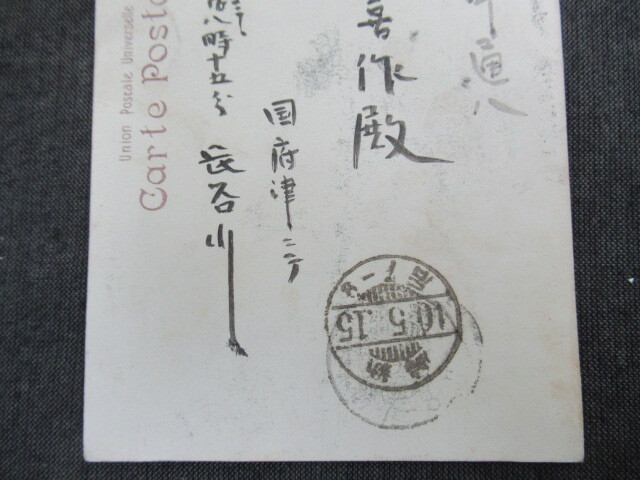 通八
喜作殿
国府津ニテ
八時十五分
長谷川
Union Postale Universelle
Carte Posta
10.5.15